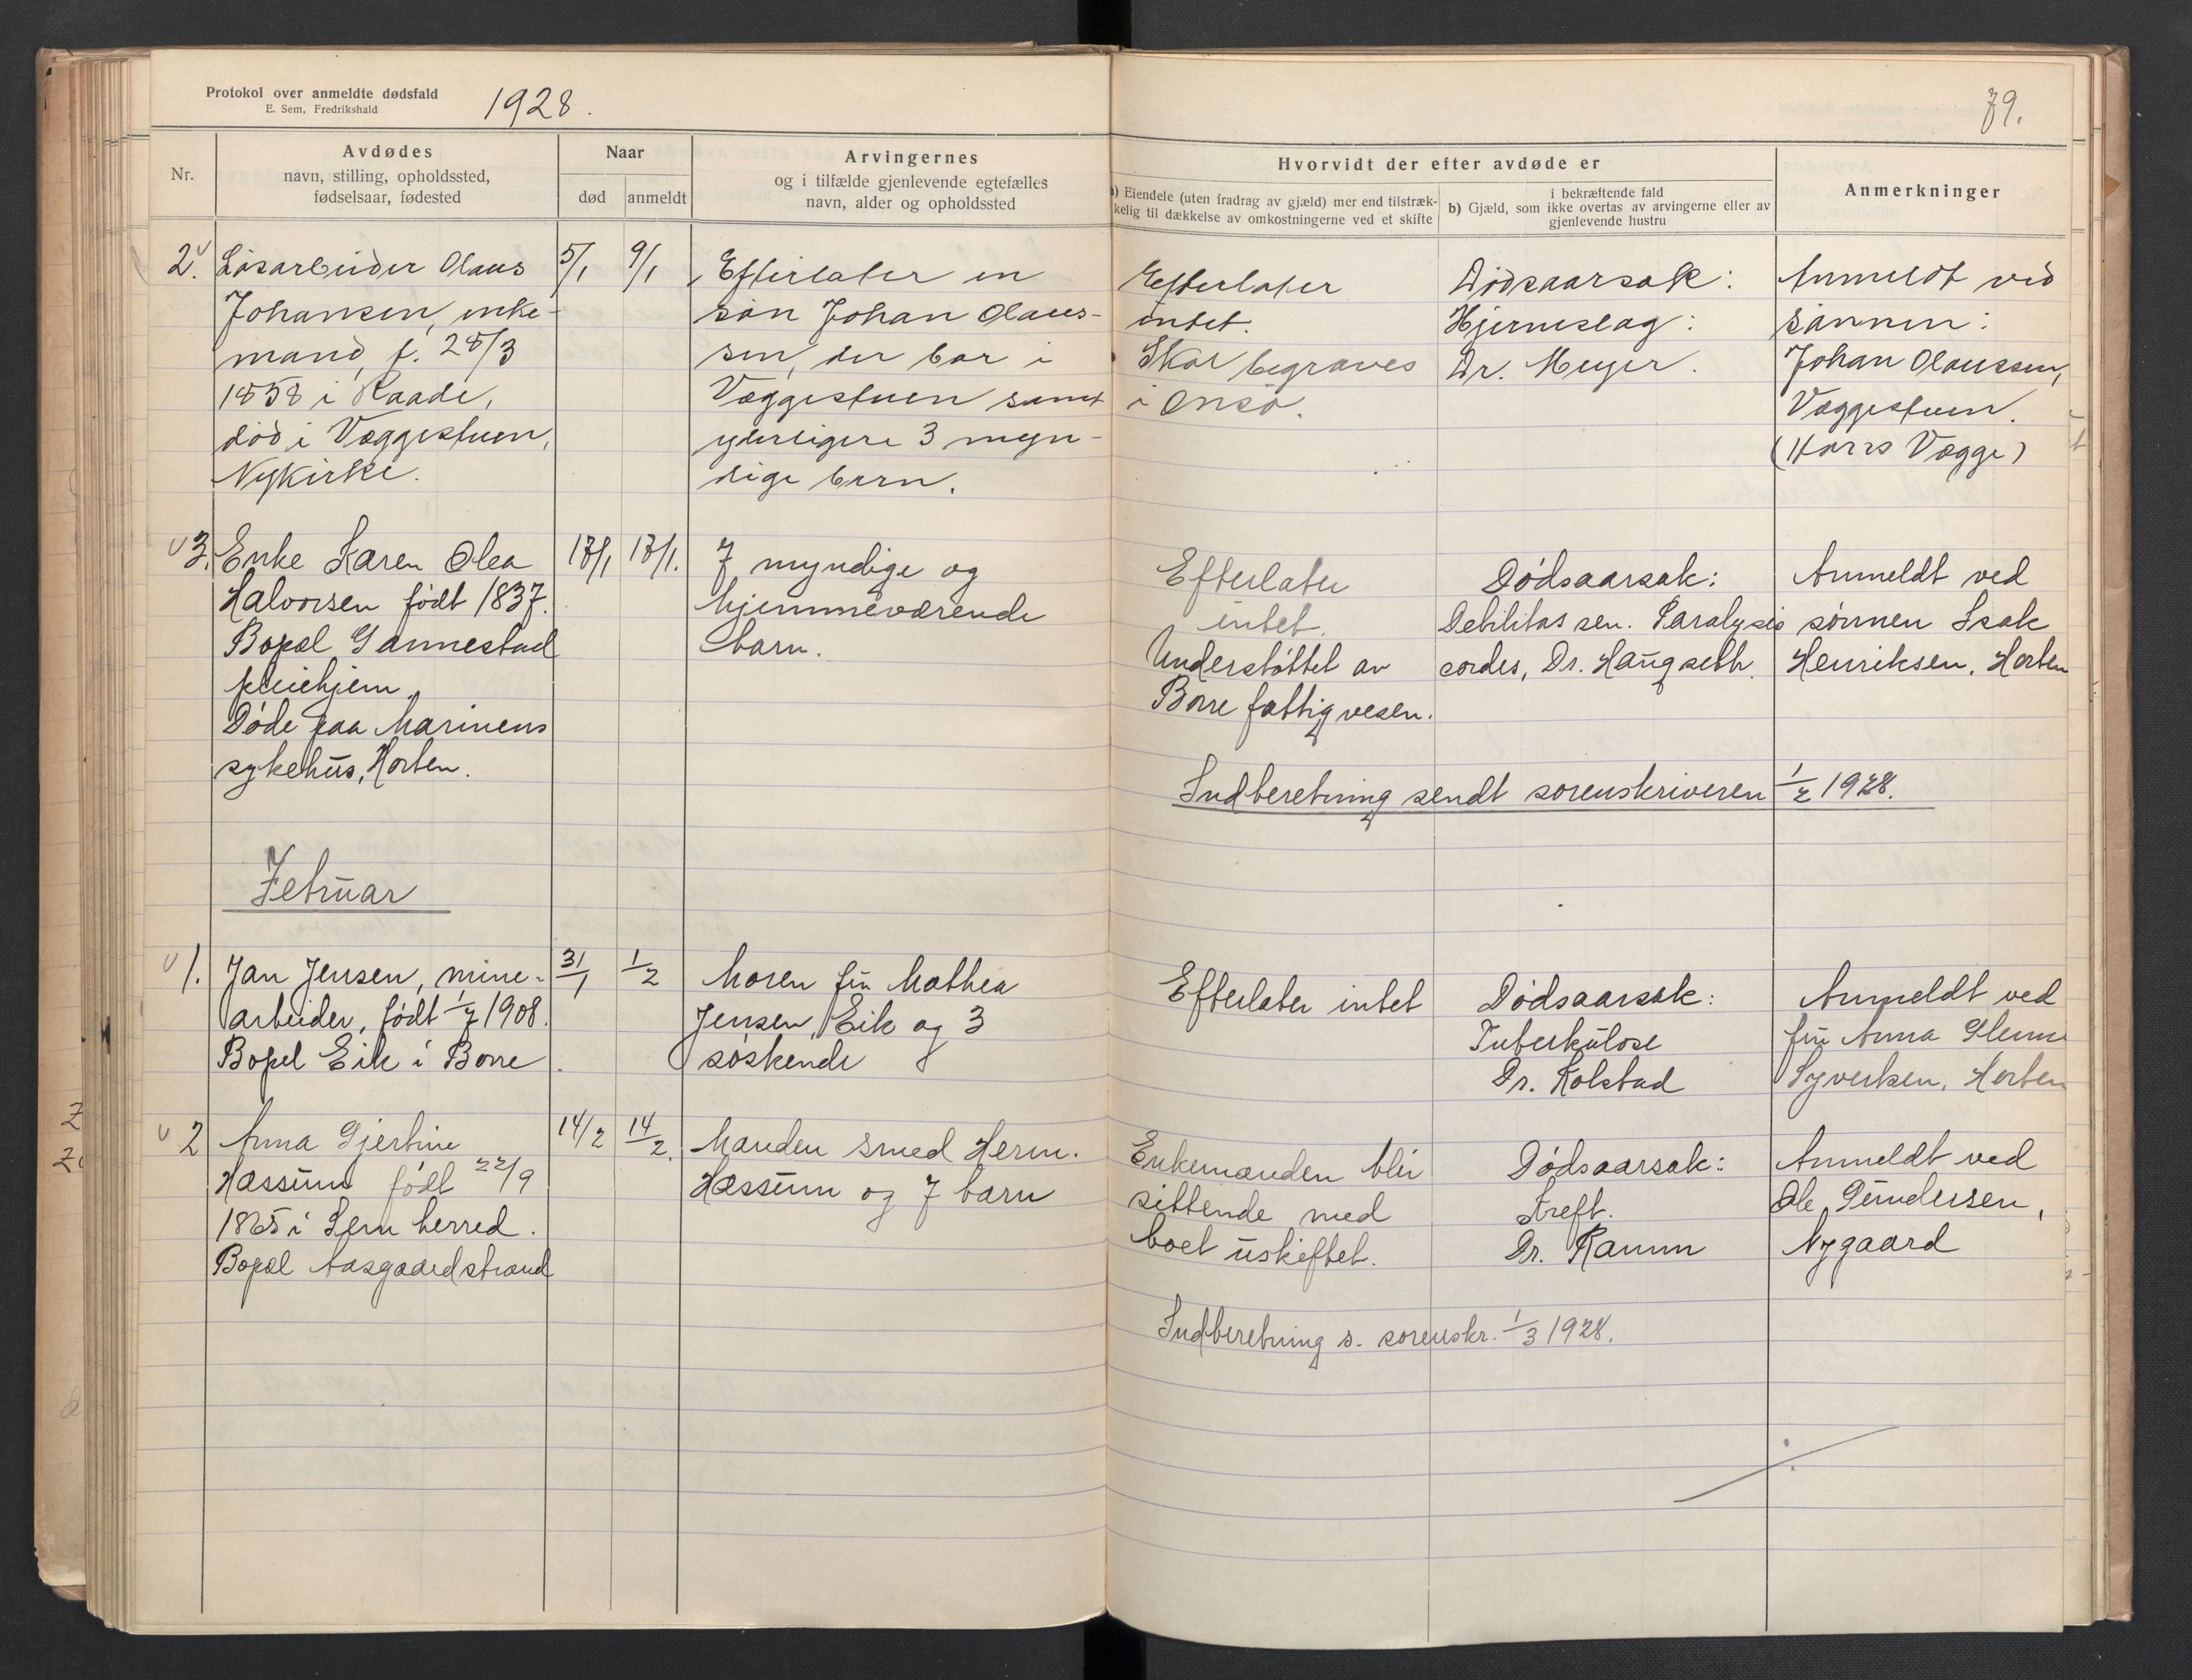 Protokol over anmeldte dødsfald
E. Sem, Fredrikshald
1928.
79.
Nr.
Avdødes
navn, stilling, opholdssted,
fødselsaar, fødested
Naar
død
anmeldt
Arvingernes
og i tilfælde gjenlevende egtefælles
navn, alder og opholdssted
Hvorvidt der efter avdøde er
a) Eiendele (uten fradrag av gjæld) mer end tilstræk-
kelig til dækkelse av omkostningerne ved et skifte
i bekræftende fald
b) Gjæld, som ikke overtas av arvingerne eller av
gjenlevende hustru
Anmerkninger
2.
Løsarbeider Olaus
Johansen, enke-
mand, f. 28/3
1858 i Raade,
død i Væggestuen,
Nykirke.
5/1
9/1
Efterlater en
søn Johan Olaus-
sen, der bor i
Væggestuen samt
yderligere 3 myn-
dige barn.
Efterlater
intet.
Skal begraves
i Onsø.
Dødsaarsak:
Hjerneslag:
Dr. Meyer.
Anmeldt ved
sønnen:
Johan Olaussen,
Væggestuen.
(Vægge)
3.
Enke Karen Olea
Halvorsen født 1837.
Bopæl Gannestad
pleiehjem.
Døde paa Marinens
sykehus, Horten.
17/1
17/1.
7 myndige og
hjemmeværende
barn.
Efterlater
intet.
Understøttet av
Borre fattigvesen.
Dødsaarsak:
Debilitas sen. Paralysis
cordis, Dr. Haugseth.
Anmeldt ved
sønnen Isak
Henriksen. Horten
Indberetning sendt sorenskriveren 1/2 1928.
Februar
1.
Jan Jensen, mine-
arbeider, født 1/7 1908.
Bopel Eik i Borre
31/1
1/2
Moren fru Mathea
Jensen, Eik og 3
søskende
Efterlater intet
Dødsaarsak:
Tuberkulose
Dr. Kolstad
Anmeldt ved
fru Anna
Syvertsen, Horten
2
Anna Gjertine
Hassum født 22/9
1865 i Sem herred.
Bopæl Aasgaardstrand
14/2
14/2.
Manden smed Herm.
Hassum og 7 barn
Enkemanden blir
sittende med
boet uskiftet.
Dødsaarsak:
Kreft.
Dr. Ramm
Anmeldt ved
Ole Gundersen,
Nygaard
Indberetning s. sorenskr. 1/3 1928.